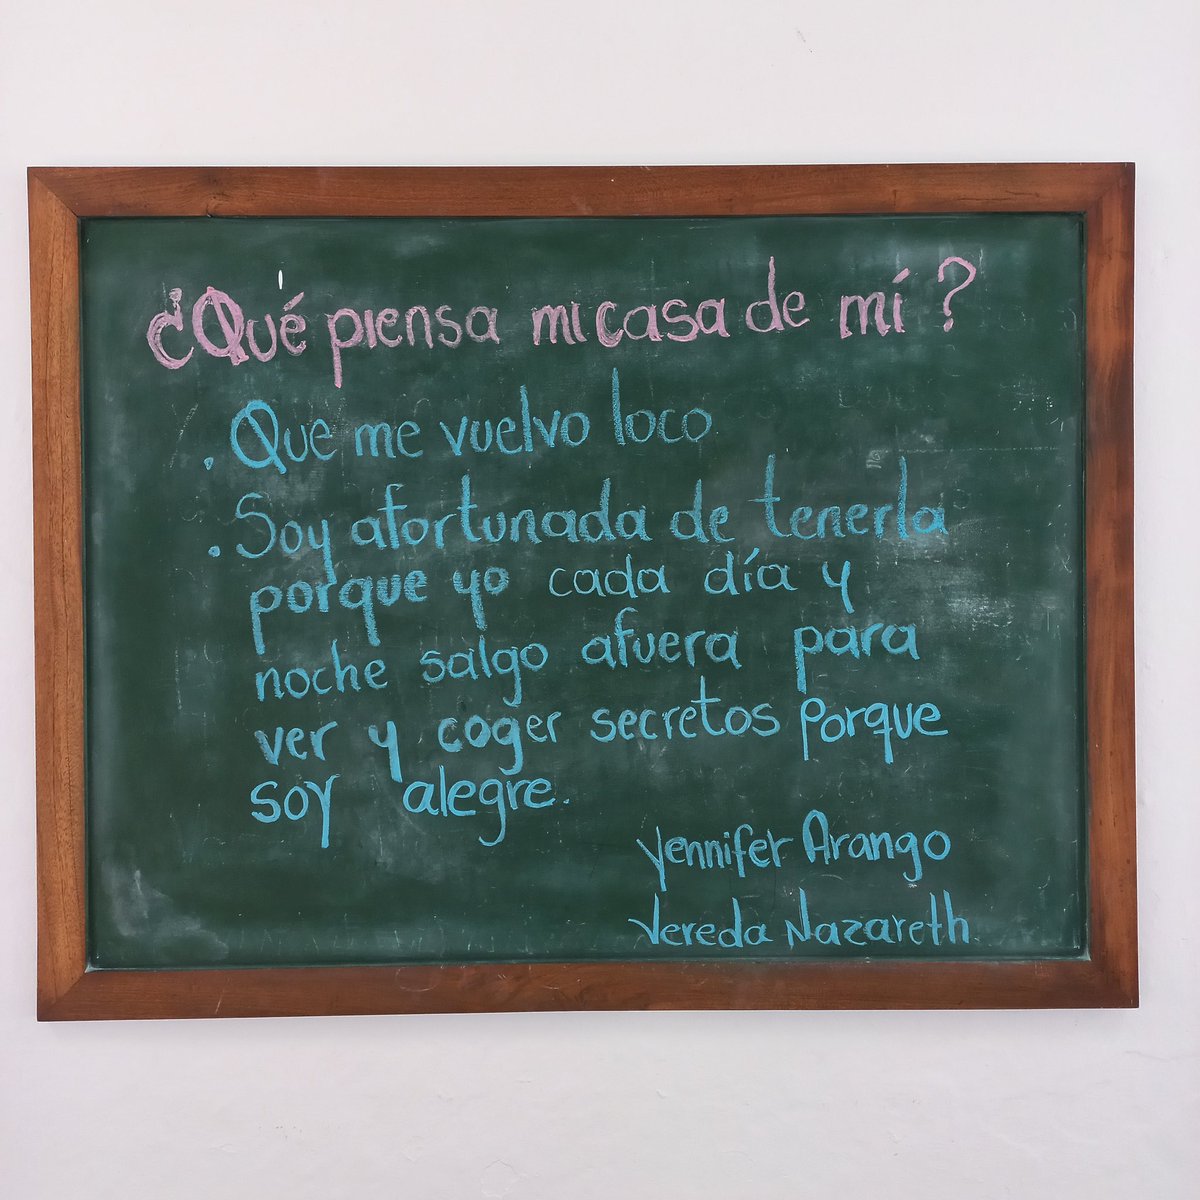 ¿Qué piensa mi casa de mí?
. Que me vuelvo loco
. Soy afortunada de tenerla
porque yo cada día y
noche salgo afuera para
ver y coger secretos porque
soy alegre.
Yennifer Arango
Vereda Nazareth